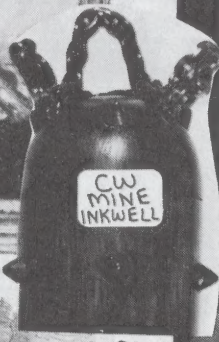 CW
MINE
INKWELL